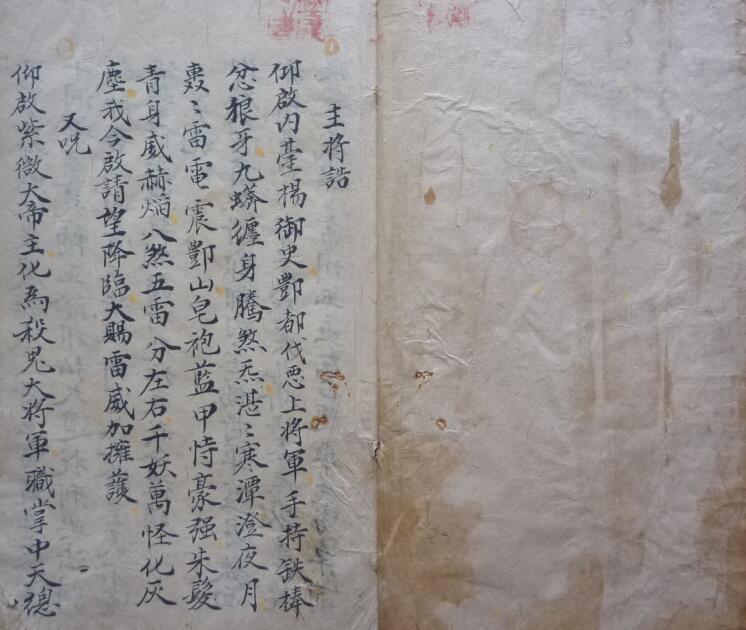 主将誥
仰啟内臺楊御史酆都伐悪上将軍手持鉄棒
忿狼牙九蟒纏身騰煞炁湛〻寒潭澄夜月
轟〻雷電震酆山皂袍藍甲恃豪强朱髮
青身威赫焰八煞五雷分左右千妖萬怪化灰
塵我今啟請望降臨大賜雷威加擁護
又咒
仰啟紫微大帝主化為殺鬼大将軍職掌中天